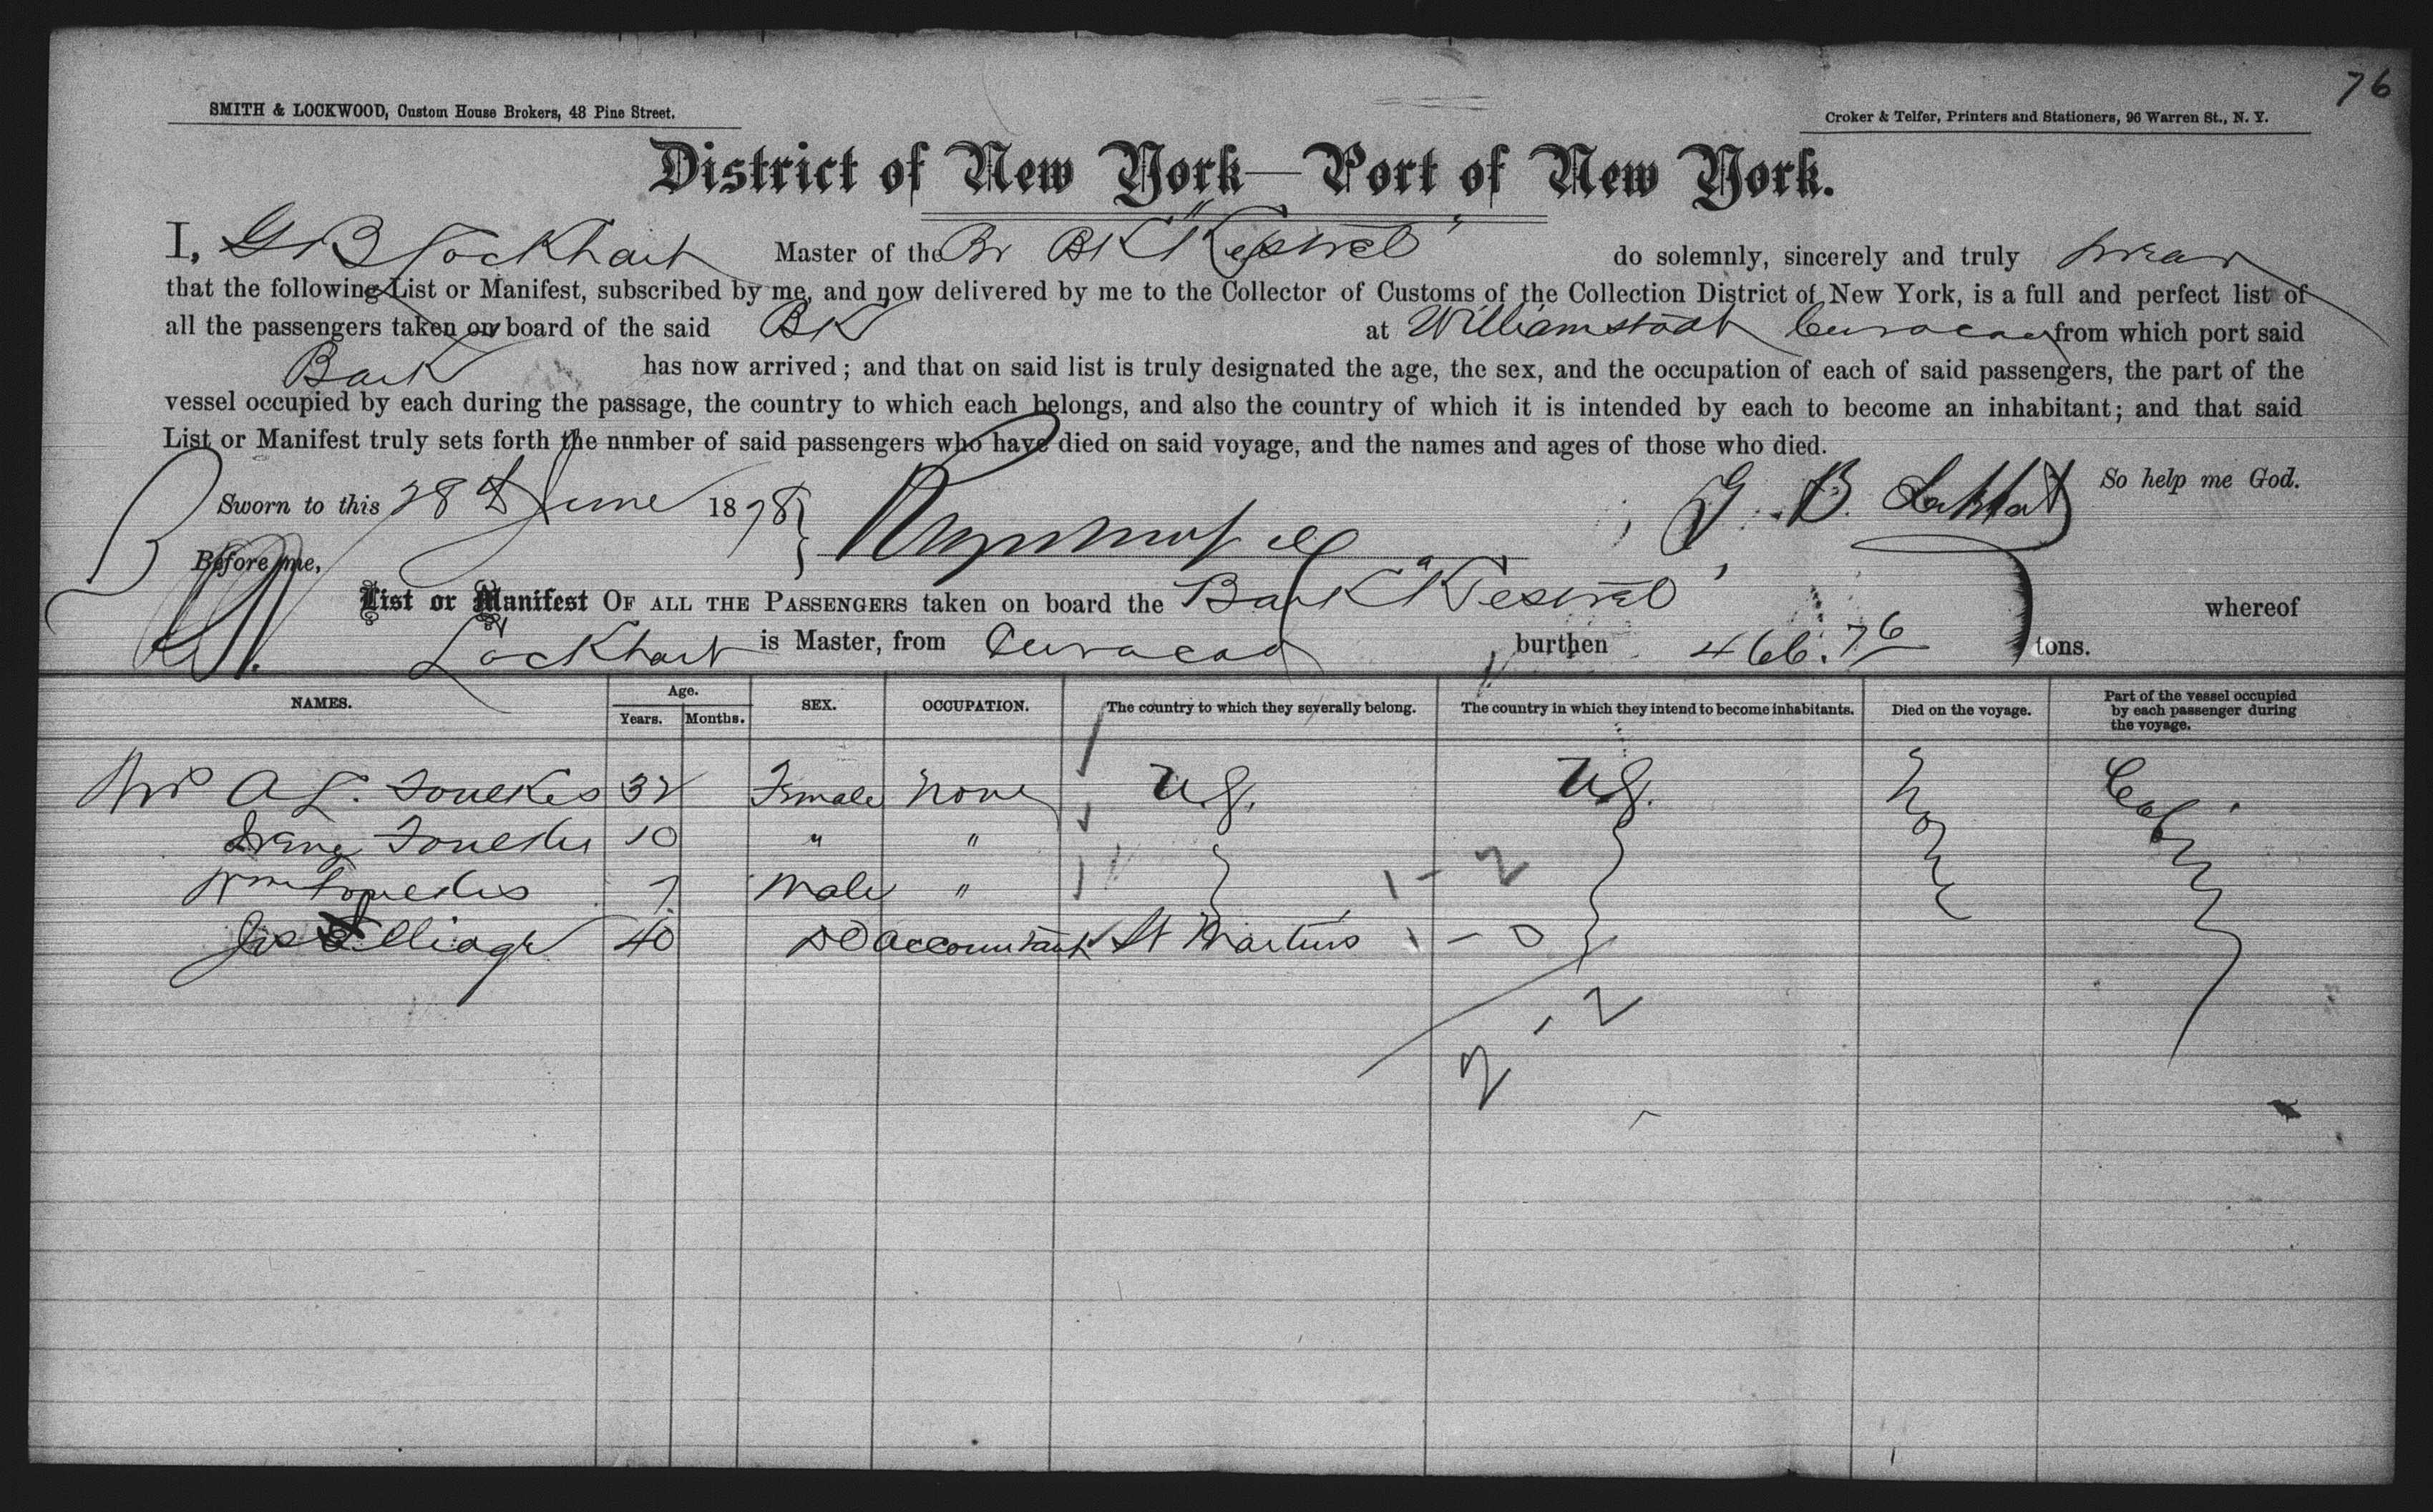 76
SMITH & LOCKWOOD, Custom House Brokers, 48 Pine Street.
Croker & Telfer, Printers and Stationers, 96 Warren St., N. Y.
District of New York—Port of New York.
I, G B Lockhart Master of the Br BK "Kestrel" do solemnly, sincerely and truly swear
that the following List or Manifest, subscribed by me, and now delivered by me to the Collector of Customs of the Collection District of New York, is a full and perfect list of
all the passengers taken on board of the said BK at Williamstadt Curacao from which port said
Bark has now arrived; and that on said list is truly designated the age, the sex, and the occupation of each of said passengers, the part of the
vessel occupied by each during the passage, the country to which each belongs, and also the country of which it is intended by each to become an inhabitant; and that said
List or Manifest truly sets forth the nnmber of said passengers who have died on said voyage, and the names and ages of those who died.
So help me God.
Sworn to this 28th June 1878 } G. B. Lockhart
Before me,
List or Manifest OF ALL THE PASSENGERS taken on board the Bark "Kestrel" whereof
Lockhart is Master, from Curacao burthen 466.76 tons.
NAMES. Age. Years. Months. SEX. OCCUPATION. The country to which they severally belong. The country in which they intend to become inhabitants. Died on the voyage. Part of the vessel occupied by each passenger during the voyage.
Mrs A L. Foulkes 32 Female None U.S. U.S. None Cabin
Foulkes 10 " "
Wm Foulkes 7 Male " 1 - 2
Jos 40 DO accountant St Martins 1 - 0
2 , 2